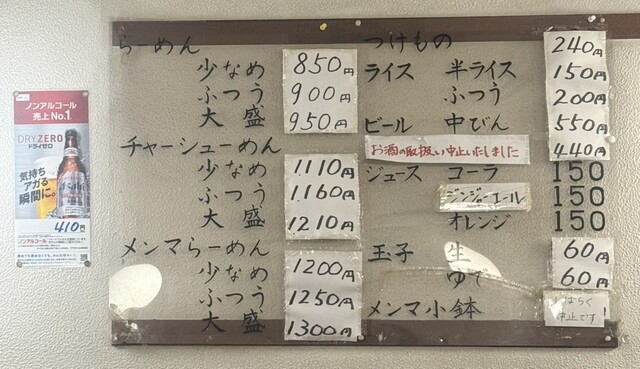 ノンアルコール
売上No.1
DRY ZERO
ドライゼロ
気持ち
アガる
瞬間に。
Asahi
410円
らーめん
少なめ 850円
ふつう 900円
大盛 950円
チャーシューめん
少なめ 1110円
ふつう 1160円
大盛 1210円
メンマらーめん
少なめ 1200円
ふつう 1250円
大盛 1300円
つけもの 240円
ライス 半ライス 150円
ふつう 200円
ビール 中びん 550円
お酒の取扱い中止いたしました 440円
ジュース コーラ 150
ジンジャーエール 150
オレンジ 150
玉子 生 60円
ゆで 60円
メンマ小鉢 しばらく
中止です!